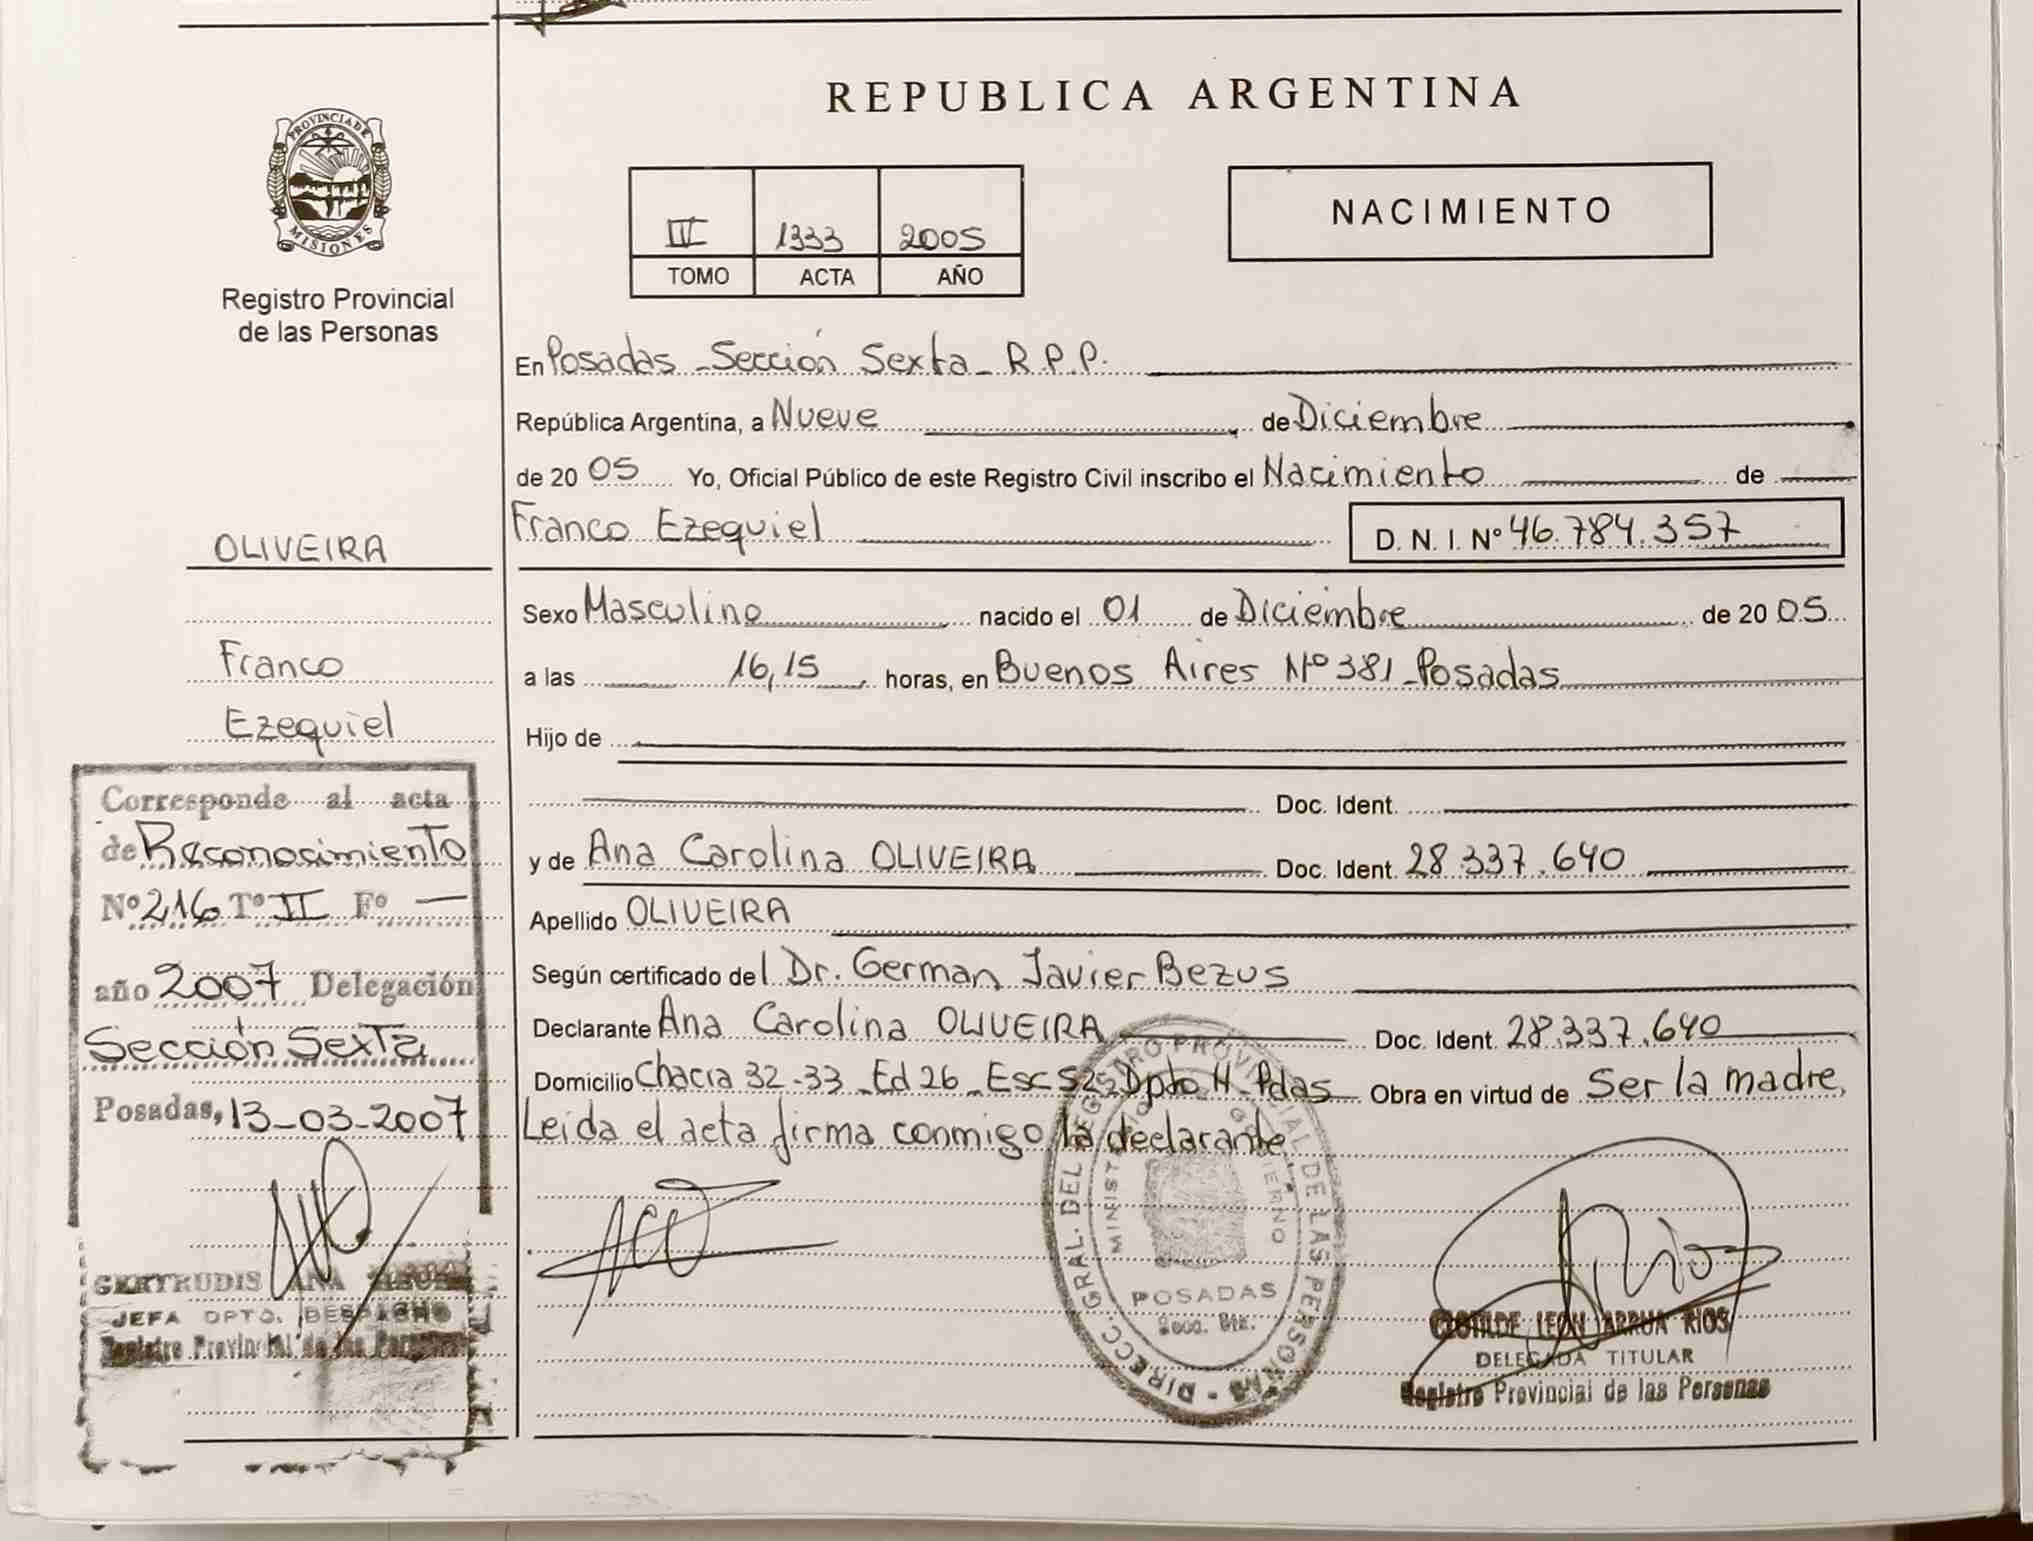 REPUBLICA ARGENTINA
PROVINCIA DE
MISIONES
Registro Provincial
de las Personas
IV 1333 2005
TOMO ACTA AÑO
NACIMIENTO
En Posadas - Sección Sexta - R.P.P.
República Argentina, a Nueve de Diciembre
de 20 05 Yo, Oficial Público de este Registro Civil inscribo el Nacimiento de
Franco Ezequiel D. N. I. Nº 46.784.357
OLIVEIRA
Franco
Ezequiel
Sexo Masculino nacido el 01 de Diciembre de 20 05
a las 16,15 horas, en Buenos Aires Nº 381 - Posadas
Hijo de
Doc. Ident.
y de Ana Carolina OLIVEIRA Doc. Ident. 28.337.640
Apellido OLIVEIRA
Según certificado del Dr. German Javier Bezus
Declarante Ana Carolina OLIVEIRA Doc. Ident. 28.337.640
Domicilio Chacra 32-33 - Ed 26 - Esc 52 - Dpto H - Pdas Obra en virtud de Ser la madre,
Leida el acta firma conmigo la declarante.
Corresponde al acta
de Reconocimiento
Nº 216 Tº II Fº —
año 2007 Delegación
Sección Sexta
Posadas, 13-03-2007
GERTRUDIS ANA
JEFA DPTO. DESPACHO
Registro Provincial de las Personas
DIRECC. GRAL. DEL REGISTRO PROVINCIAL DE LAS PERSONAS
MINISTERIO DE GOBIERNO
POSADAS
CLOTILDE LEON ARRUA RIOS
DELEGADA TITULAR
Registro Provincial de las Personas